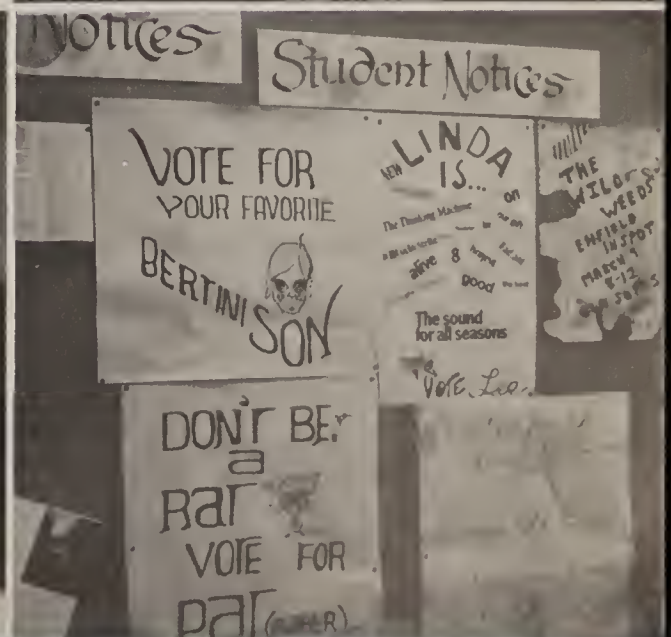 NOTICES
Student Notices
VOTE FOR
YOUR FAVORITE
BERTINI
SON
NEW LINDA
IS...
on
The Thinking Machine
alive 8
Good
The sound
for all seasons
VOTE
THE
WILD
WEEDS
ENFIELD
INSPOT
MARCH 9
8-12
DON'T BE
a
Rat
VOTE FOR
Pat